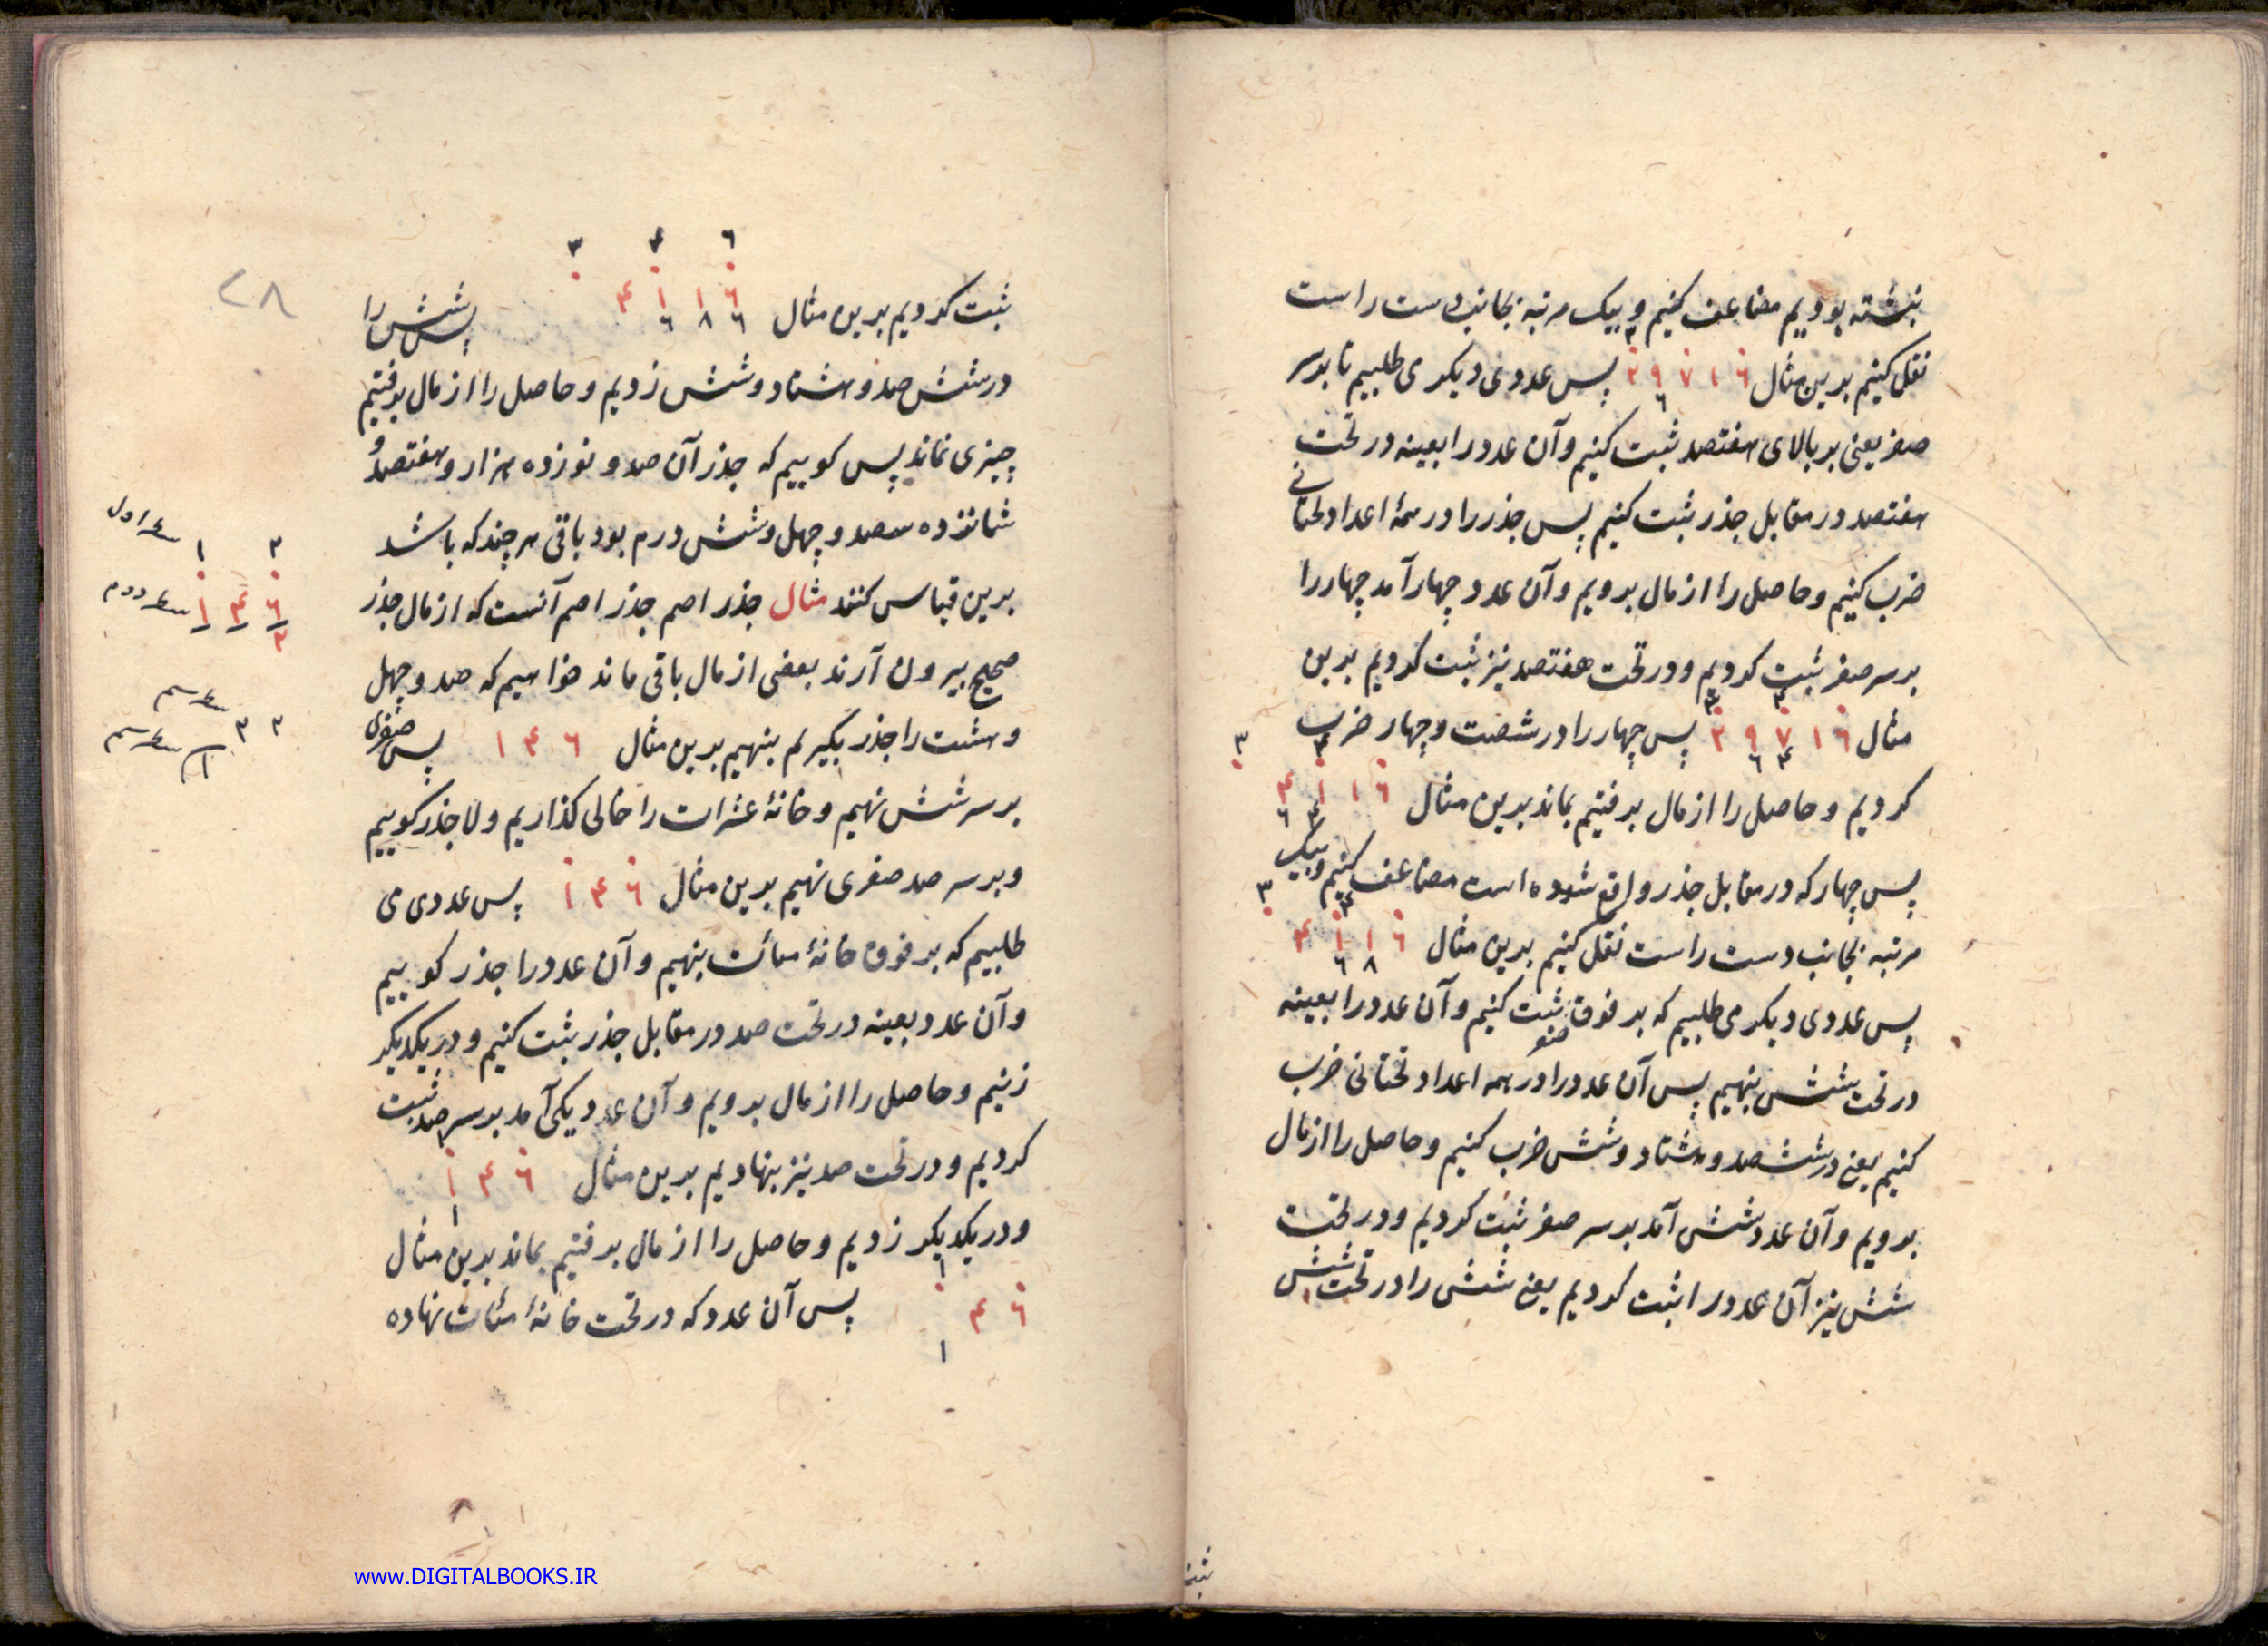 نبشته بودیم مضاعف کنیم و بیک مرتبه بجانب دست راست
نقل کنیم برین مثال پس عددی دیکر می طلبیم تا بر سر
صفر یعنی بر بالای هفتصد ثبت کنیم و آن عدد را بعینه در تحت
هفتصد در مقابل جذر ثبت کنیم پس جذر را در همهٔ اعداد تحتانی
ضرب کنیم و حاصل را از مال برویم و آن عدد چهار آمد چهار را
بر سر صفر ثبت کردیم و در تحت هفتصد نیز ثبت کردیم برین
مثال پس چهار را در شصت و چهار ضرب
کردیم و حاصل را از مال برفتیم بماند برین مثال
پس چهار که در مقابل جذر واقع شده است مضاعف کنیم و بیک
مرتبه بجانب دست راست نقل کنیم برین مثال
پس عددی دیکر می طلبیم که بر فوق صفر ثبت کنیم و آن عدد را بعینه
در تحت شش بنهیم پس آن عدد را در همه اعداد تحتانی ضرب
کنیم یعنی در ششصد و هشتاد و شش ضرب کنیم و حاصل را از مال
برویم و آن عدد شش آمد بر سر صفر ثبت کردیم و در تحت
شش نیز آن عدد را ثبت کردیم یعنی شش را در تحت شش
ثبت
۲۸
۳ ۴ ٦
ثبت کردیم برین مثال ۴ ۱ ۱ ٦ پس شش را
٦ ۸ ٦
در ششصد و هشتاد و شش زدیم و حاصل را از مال برفتیم
چیزی نماند پس کوییم که جذر آن صد و نوزده هزار و هفتصد و
شانزده سصد و چهل و شش درم بود باقی هر چند که باشد
برین قیاس کنند مثال جذر اصم جذر اصم آنست که از مال جذر
صحیح بیرون آرند بعضی از مال باقی ماند خواهیم که صد و چهل
و هشت را جذر بگیریم بنهیم برین مثال ۱ ۴ ٦ پس صفری
بر سر شش نهیم و خانهٔ عشرات را خالی کذاریم و لا جذر کوییم
و بر سر صد صفری نهیم برین مثال ۱ ۴ ٦ پس عددی می
طلبیم که بر فوق خانهٔ مئات بنهیم و آن عدد را جذر کوییم
و آن عدد بعینه در تحت صد در مقابل جذر ثبت کنیم و در یکدیکر
زنیم و حاصل را از مال برویم و آن عدد یکی آمد بر سر صد ثبت
کردیم و در تحت صد نیز بنهادیم برین مثال ۱ ۴ ٦
۱
و در یکدیکر زدیم و حاصل را از مال برفتیم بماند برین مثال
۴ ٦ پس آن عدد که در تحت خانهٔ مئات نهاده
۱
سطر اول
سطر دوم
www.DIGITALBOOKS.IR